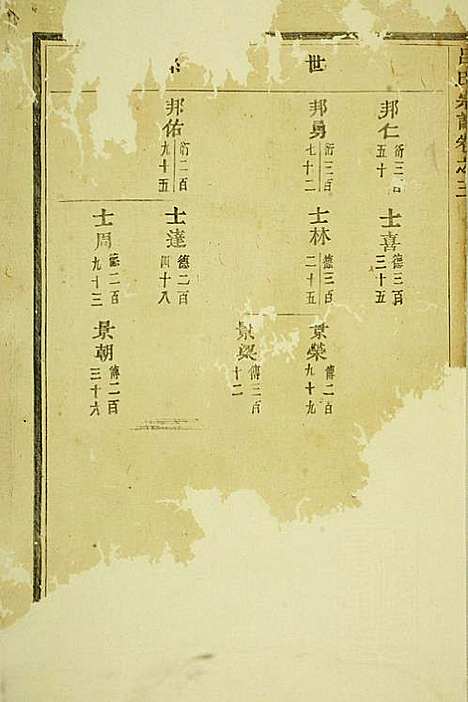 呂氏宗譜卷之三
世
邦仁 衍三百五十
士喜 德三百三十五
邦勇 衍三百七十二
士林 德三百二十五
景榮 傳二百九十九
景梁 傳三百十二
邦佑 衍二百九十五
士達 德二百四十八
士周 德二百九十三
景朝 傳二百三十六